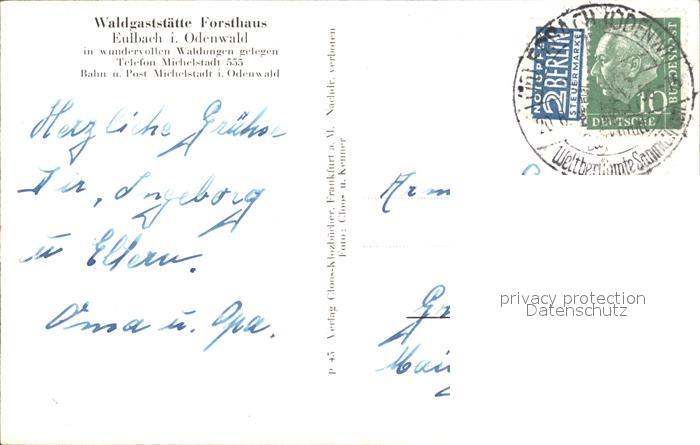 Waldgaststätte Forsthaus
Eulbach i. Odenwald
in wundervollen Waldungen gelegen
Telefon Michelstadt 555
Bahn u. Post Michelstadt i. Odenwald
Herzliche Grüße
Dir, Ingeborg
u Eltern.
Oma u. Opa.
P 45 Verlag Cloos-Klozbücher, Frankfurt a. M. Nachdr. verboten
Foto: Cloos u. Kenner
NOTOPFER
2 BERLIN
STEUERMARKE
10
DEUTSCHE
BUNDESPOST
ERBACH (ODENW
Weltberühmte
Arm
Gr
Main
privacy protection
Datenschutz